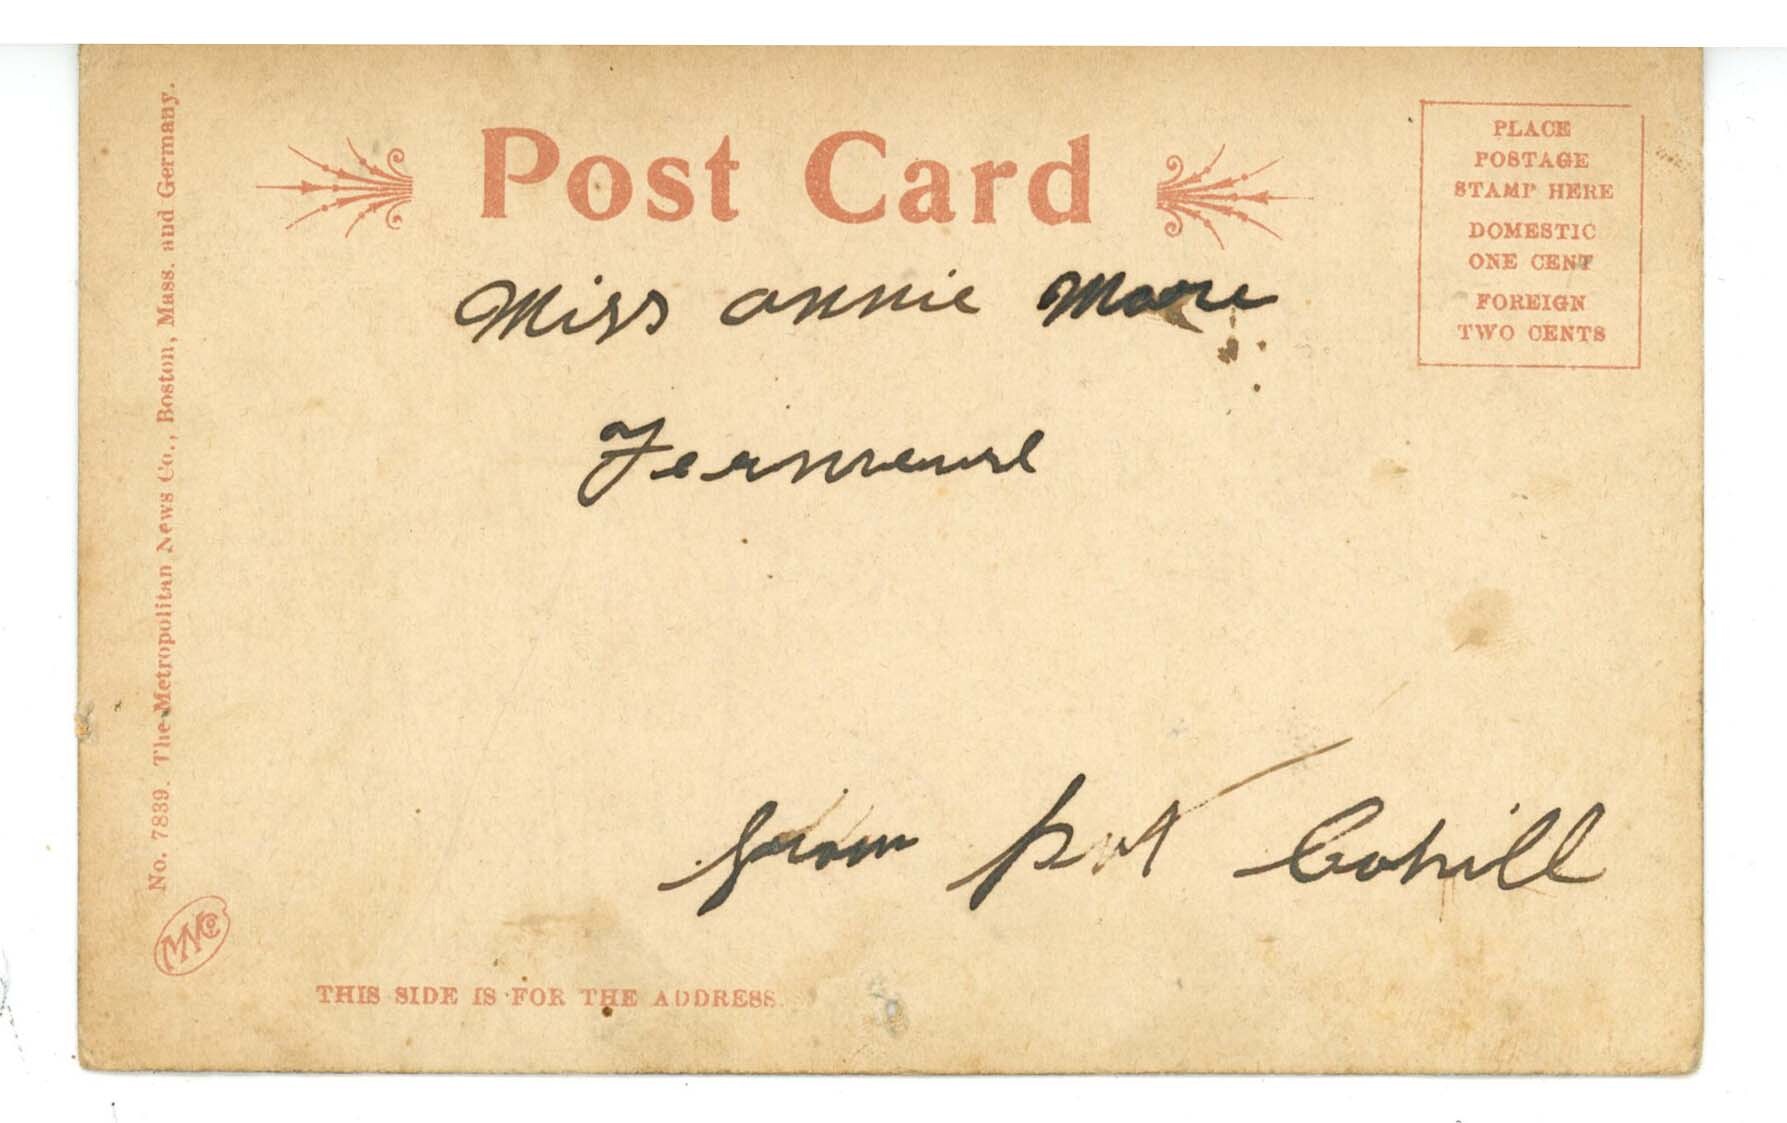 Post Card
PLACE
POSTAGE
STAMP HERE
DOMESTIC
ONE CENT
FOREIGN
TWO CENTS
Miss Annie Moore
from Pat Cahill
No. 7839. The Metropolitan News Co., Boston, Mass. and Germany.
MNCo
THIS SIDE IS FOR THE ADDRESS.